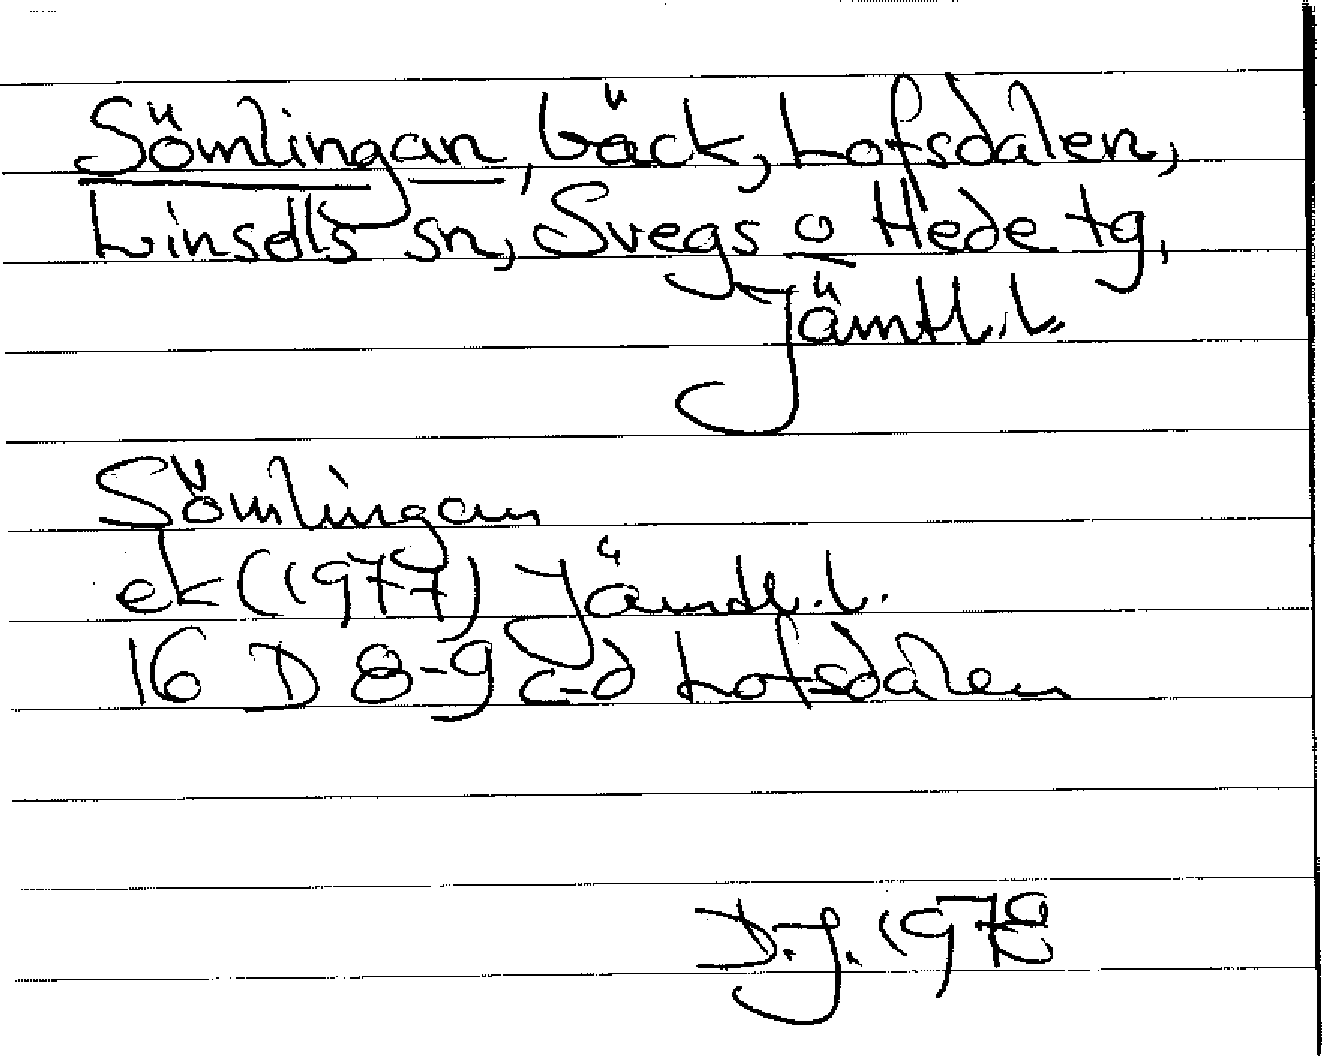 Sömlingan, bäck, Lofsdalen,
Linsells sn, Svegs o Hede tg,
Jämtl. l.
Sömlingan
ek (1977) Jämtl. l.
16 D 8-9 c-d Lofsdalen
D.J. 1978